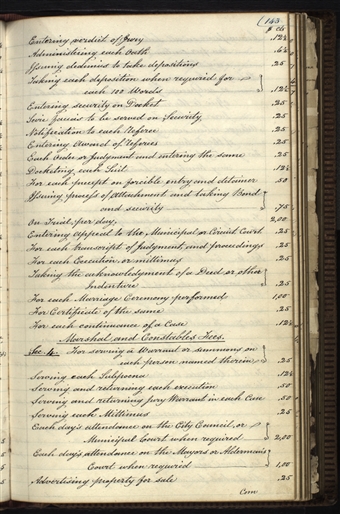 (143
$ cts
Entering verdict of Jury 12½
Administering each Oath 6¼
Issuing dedimus to take depositions .25
Taking each deposition when required for
each 100 Words } .12½
Entering security on Docket .25
Scire facias to be served on Security .25
Notification to each Referee .25
Entering Award of Referies .25
Each Order or Judgment and entering the same .25
Docketing each Suit .12½
For each precept on forcible entry and detainer .50
Issuing process of Attachment and taking Bond
and security } .75
On Trial, per day, 2,00
Entering appeal to the Municipal or Circuit Court .25
For each transcript of Judgment, and proceedings .25
For each Execution or mittimus .25
Taking the acknowledgment of a Deed or other
Indenture } .25
For each Marriage Ceremony performed 1,00
For Certificate of the same .25
For each continuance of a Case .12½
Marshal and Constables Fees.
Sec. 4. For serving a Warrant or summons on
each person named therein } .25
Serving each Subpoena .12½
Serving and returning each execution .50
Serving and returning Jury Warrant in each Case .50
Serving each Mittimus .25
Each day's attendance on the City Council, or
Municipal Court when required } 2,00
Each day's attendance on the Mayors or Alderman's
Court when required } 1,00
Advertising property for sale .25
Com